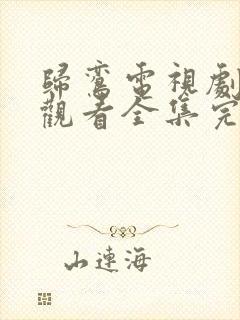 歸鸞電視劇
觀看全集完
山連海